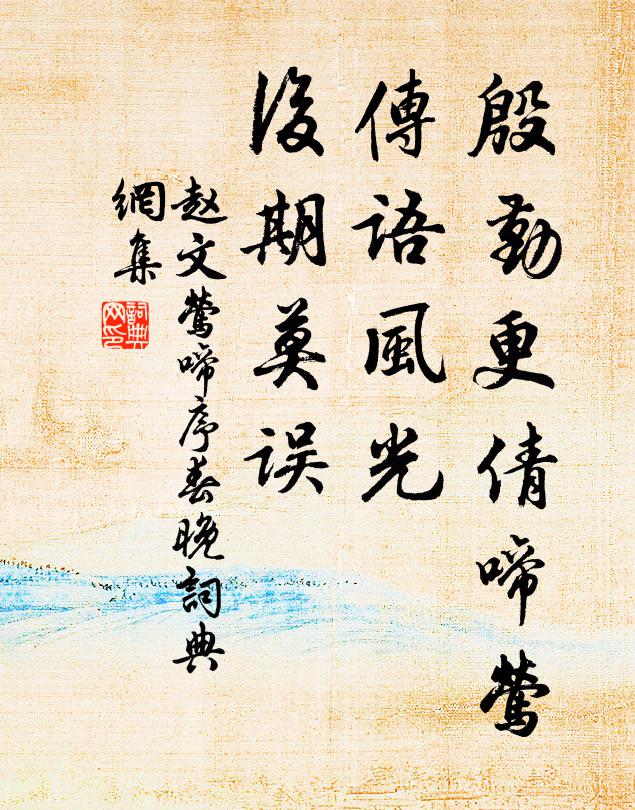 殷勤更倩啼鶯
傳語風光
後期莫误
赵文鶯啼序春晚詞典
網集
詞典
网印